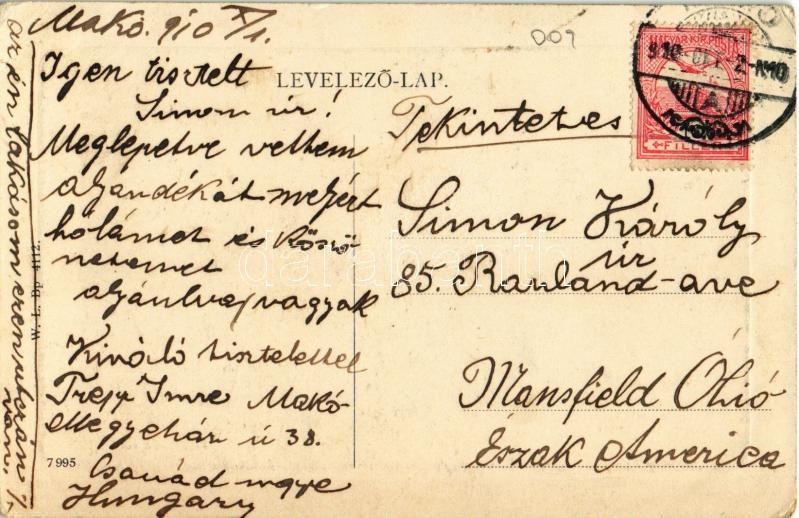 Makó. 910 X/1.
D09
Igen tisztelt
Simon úr!
Meglepetve vettem
ajándékát melyért
hálámat és köszö-
netemet
ajánlva, vagyok
Kiváló tisztelettel
Trepp Imre Makó
Megyeház ú 38.
Csanád megye
Hungary
az én lakásom ezen utcán
van.
W. L. Bp. 4112
7995
LEVELEZŐ-LAP.
MAGYAR KIR. POSTA
FILLÉR
910
Tekintetes
Simon Károly
úr
85. Rowland-ave
Mansfield Óhió
Észak America
darabanth